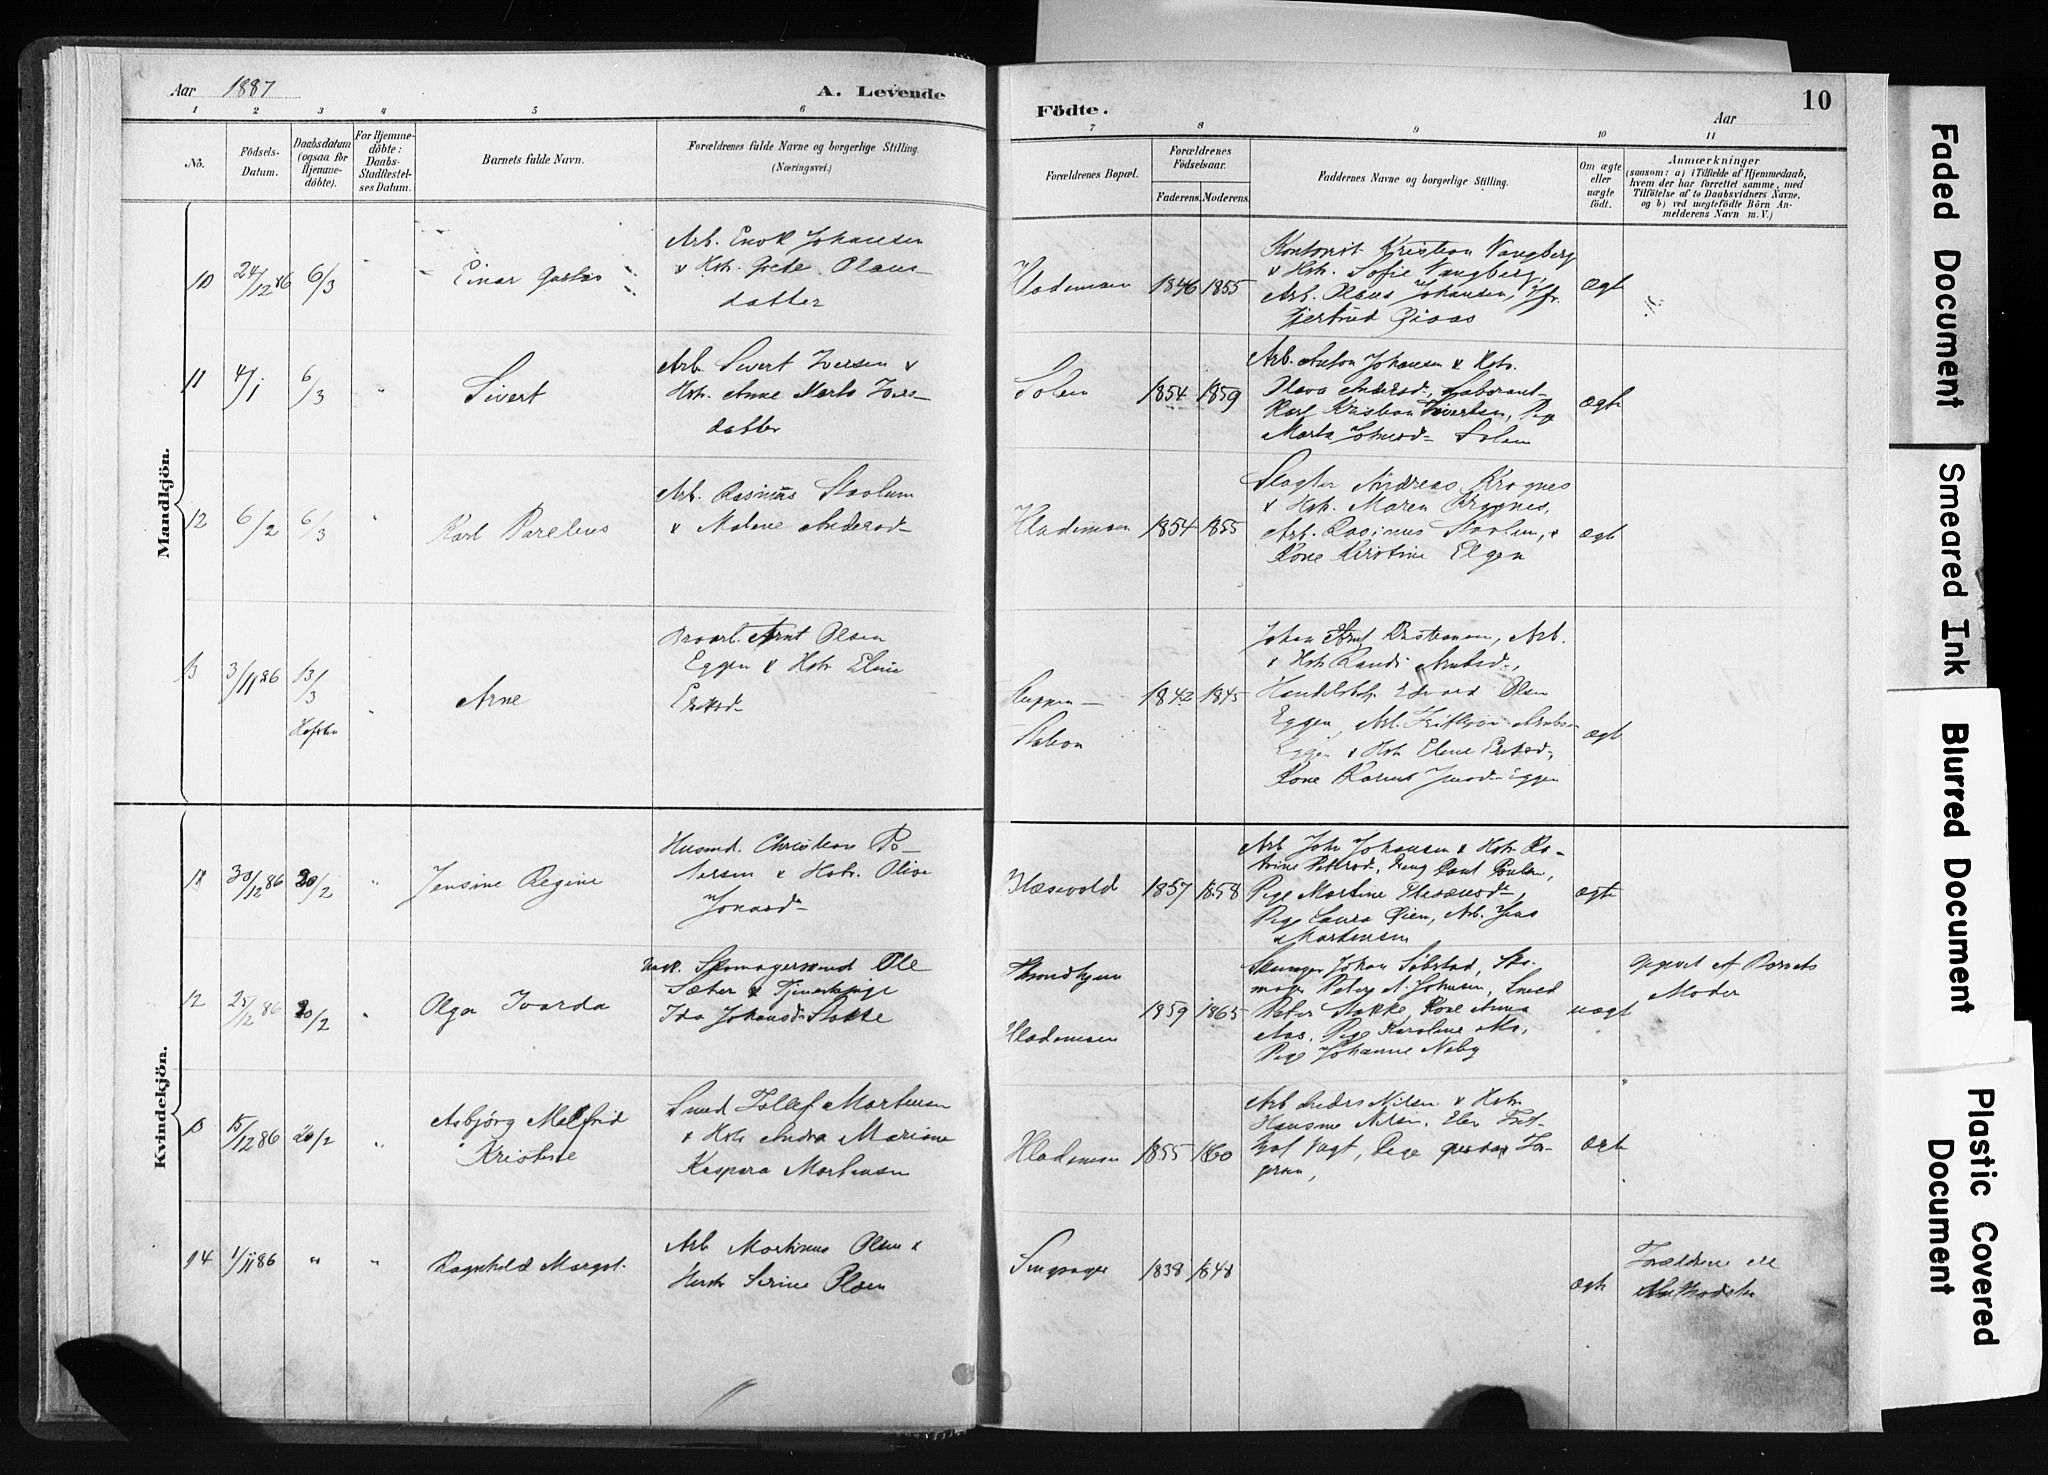 Aar 1887
A. Levende
Födte.
Aar
10
1 2 3 4 5 6
7 8 9 10 11
No.
Födsels-Datum.
Daabsdatum (ogsaa for Hjemmedöbte).
For Hjemmedöbte: Daabs-Stadfestelses Datum.
Barnets fulde Navn.
Forældrenes fulde Navne og borgerlige Stilling. (Næringsvei.)
Forældrenes Bopæl.
Forældrenes Födselsaar.
Faderens. Moderens.
Faddernes Navne og borgerlige Stilling.
Om ægte eller uægte födt.
Anmærkninger
(sansom: a) i Tilfælde af Hjemmedaab, hvem der har forrettet samme, med Tilföielse af to Daabsvidners Navne, og b) ved uægtefödte Börn Anmelderens Navn m. V.)
Mandkjön.
10 24/12 86 6/3
Einar Gustav
Arb. Enok Johansen
& Hstr. Grete Olaus-
datter
Hlademoen
1846 1855
Kontorist Kristian Vangberg
& Hstr. Sofie Vangberg,
Arb. Olaus Johansen,
ægt
11 4/1 6/3 "
Sivert
Arb. Sivert Iversen &
Hstr. Anne Marta Ivers-
datter
Solem
1854 1859
Arb. Anton Johansen & Hstr.
Olava Andersd., Laborant
Karl Kristian Sivertsen, Pig
Marta Johnsd. Solem
ægt
12 6/2 6/3 "
Karl Parelius
Arb. Rasmus Stavlum
& Malene Andersd.
Hlademoen
1854 1855
Slagter Andreas Krognes
& Hstr. Maren Krognes,
Arb. Rasmus Stavlum, &
Kone Kirstine Elgen
ægt
13 3/11 86 13/3 "
Arne
Arnt Olsen
Eggen & Hstr Eline
Eriksd.
Sluppen
Station
1842 1845
Johan Arnt Kristiansen, Arb.
& Hstr Randi Arntsd.,
Edvard Olsen
Eggen, Arb. Fritthjov Arntsen
Eggen & Hstr Elene Eriksd.,
Kone Eggen
ægt
Kvindekjön.
11 30/12 86 20/2 "
Jensine Regine
Husmd. Christian Pe-
tersen & Hstr. Oline
Jonasd.
Blæsevold
1857 1858
Arb John Johansen & Hstr. Ka-
trine Petersd., Dreng Paul Poulsen,
Pige Martine
Pige Laura Øien, Arb. Jens
Martinsen
ægte
12 25/12 86 20/2 "
Olga Ivarda
Skomagersvend Ole
Sæter & Tjenestepige
Ida Johansd. Stokke
Throndhjem
Hlademoen
1859 1865
Skomager Johan Söbstad, Sko-
mager Peter A. Johnsen, Smed
Peter Stokke, Kone Anna
Aas, Pige Karoline Mo,
Pige Johanne Neby
uægt
opgivet af Barnets
Moder
13 15/12 86 20/2 "
Asbjörg Malfrid
Kristine
Smed Tollef Mortensen
& Hstr Andra Mariane
Kaspara Mortensen
Hlademoen
1855 1860
Arb Anders Nilsen & Hstr.
Hansine Nilsen, Elev Frit-
hjof Vagt, Pige
ægt
14 1/11 86 " "
Ragnhild Margot.
Arb Martinus Olsen &
Hustr Serine Olsen
1838 1848
ægt
Forældrene ere
Methodister
Faded Document
Smeared Ink
Blurred Document
Plastic Covered Document